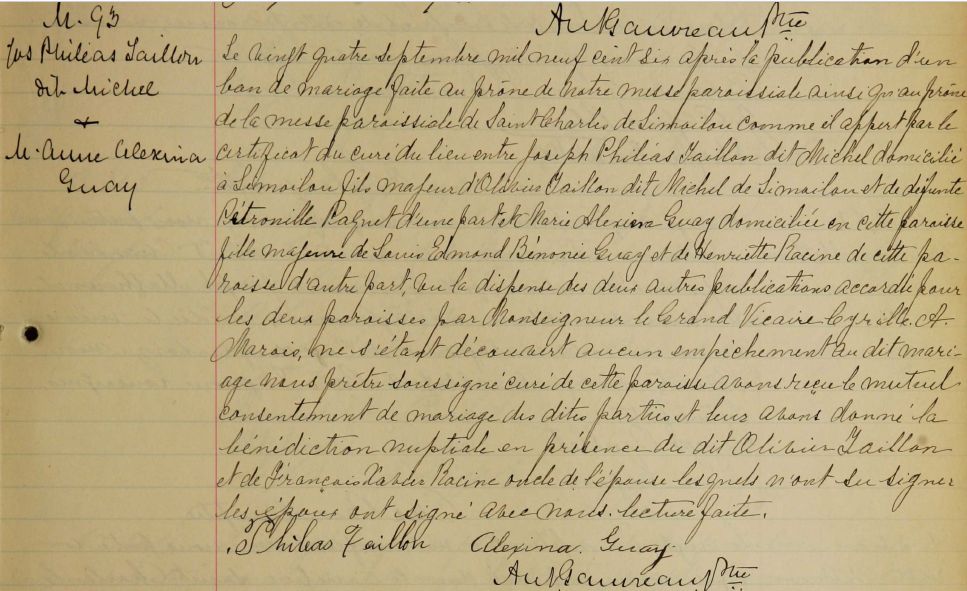 M. 93
Jos Philéas Taillon
dit Michel
+
M. Anne Alexina
Guay
Ant Gauvreau Ptre
Le vingt quatre septembre mil neuf cent six après la publication d'un
ban de mariage faite au prône de notre messe paroissiale ainsi qu'au prône
de la messe paroissiale de Saint Charles de Limoilou comme il appert par le
certificat du curé du lieu entre Joseph Philéas Taillon dit Michel domicilié
à Limoilou fils majeur d'Olivier Taillon dit Michel de Limoilou et de défunte
Pétronille Paquet d'une part et Marie Alexina Guay domiciliée en cette paroisse
fille majeure de Louis Edmond Bénonie Guay et de Henriette Racine de cette pa-
roisse d'autre part, vu la dispense des deux autres publications accordée pour
les deux paroisses par Monseigneur le Grand Vicaire Cyrille A.
Marois, ne s'étant découvert aucun empêchement au dit mari-
age nous prêtre soussigné curé de cette paroisse avons reçu le mutuel
consentement de mariage des dites parties et leur avons donné la
bénédiction nuptiale en présence du dit Olivier Taillon
et de François Xavier Racine oncle de l'épouse lesquels n'ont su signer
les époux ont signé avec nous. lecture faite.
J Phileas Taillon Alexina. Guay.
Ant Gauvreau Ptre